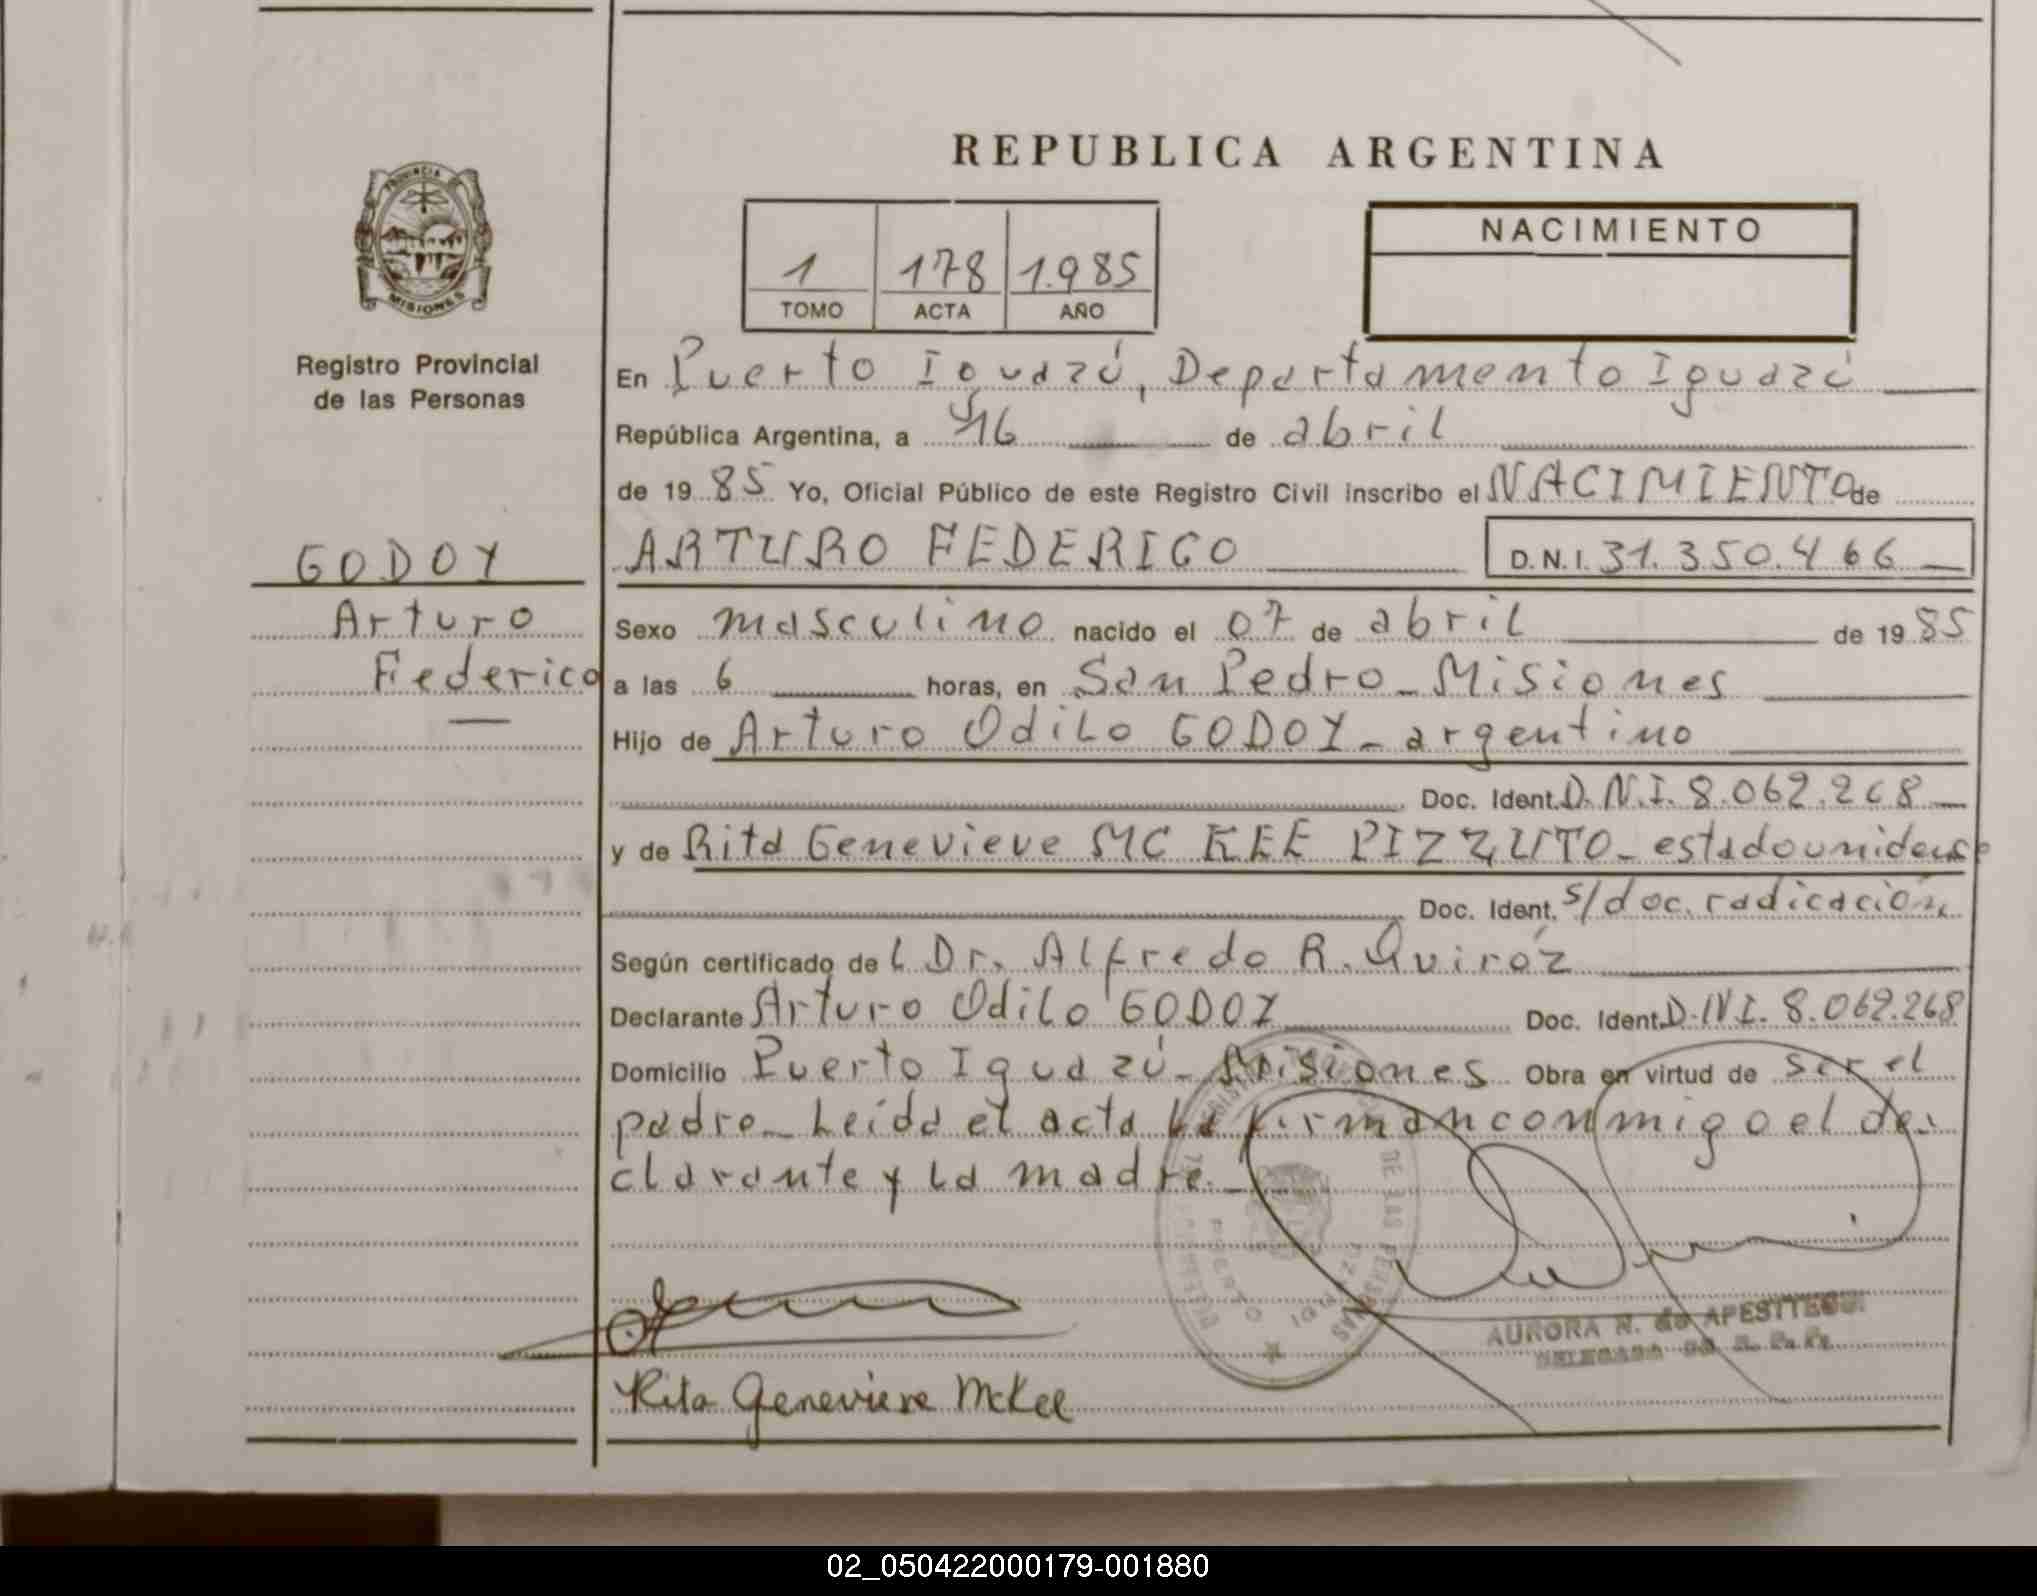 REPUBLICA ARGENTINA
PROVINCIA DE
MISIONES
Registro Provincial
de las Personas
1 178 1.985
TOMO ACTA AÑO
NACIMIENTO
En Puerto Iguazú, Departamento Iguazú
República Argentina, a 16 de abril
de 1985 Yo, Oficial Público de este Registro Civil inscribo el NACIMIENTO de
GODOY
Arturo
Federico
ARTURO FEDERICO D.N.I. 31.350.466
Sexo masculino nacido el 07 de abril de 1985
a las 6 horas, en San Pedro - Misiones
Hijo de Arturo Odilo GODOY - argentino
Doc. Ident. D.N.I. 8.062.268
y de Rita Genevieve MC KEE PIZZUTO - estadounidense
Doc. Ident. s/doc. radicación
Según certificado del Dr. Alfredo R. Quiróz
Declarante Arturo Odilo GODOY Doc. Ident. D.N.I. 8.062.268
Domicilio Puerto Iguazú - Misiones Obra en virtud de ser el
padre - Leída el acta la firman conmigo el de-
clarante y la madre. -
AURORA N. de APESTTEGUI
Rita Genevieve McKee
02_050422000179-001880